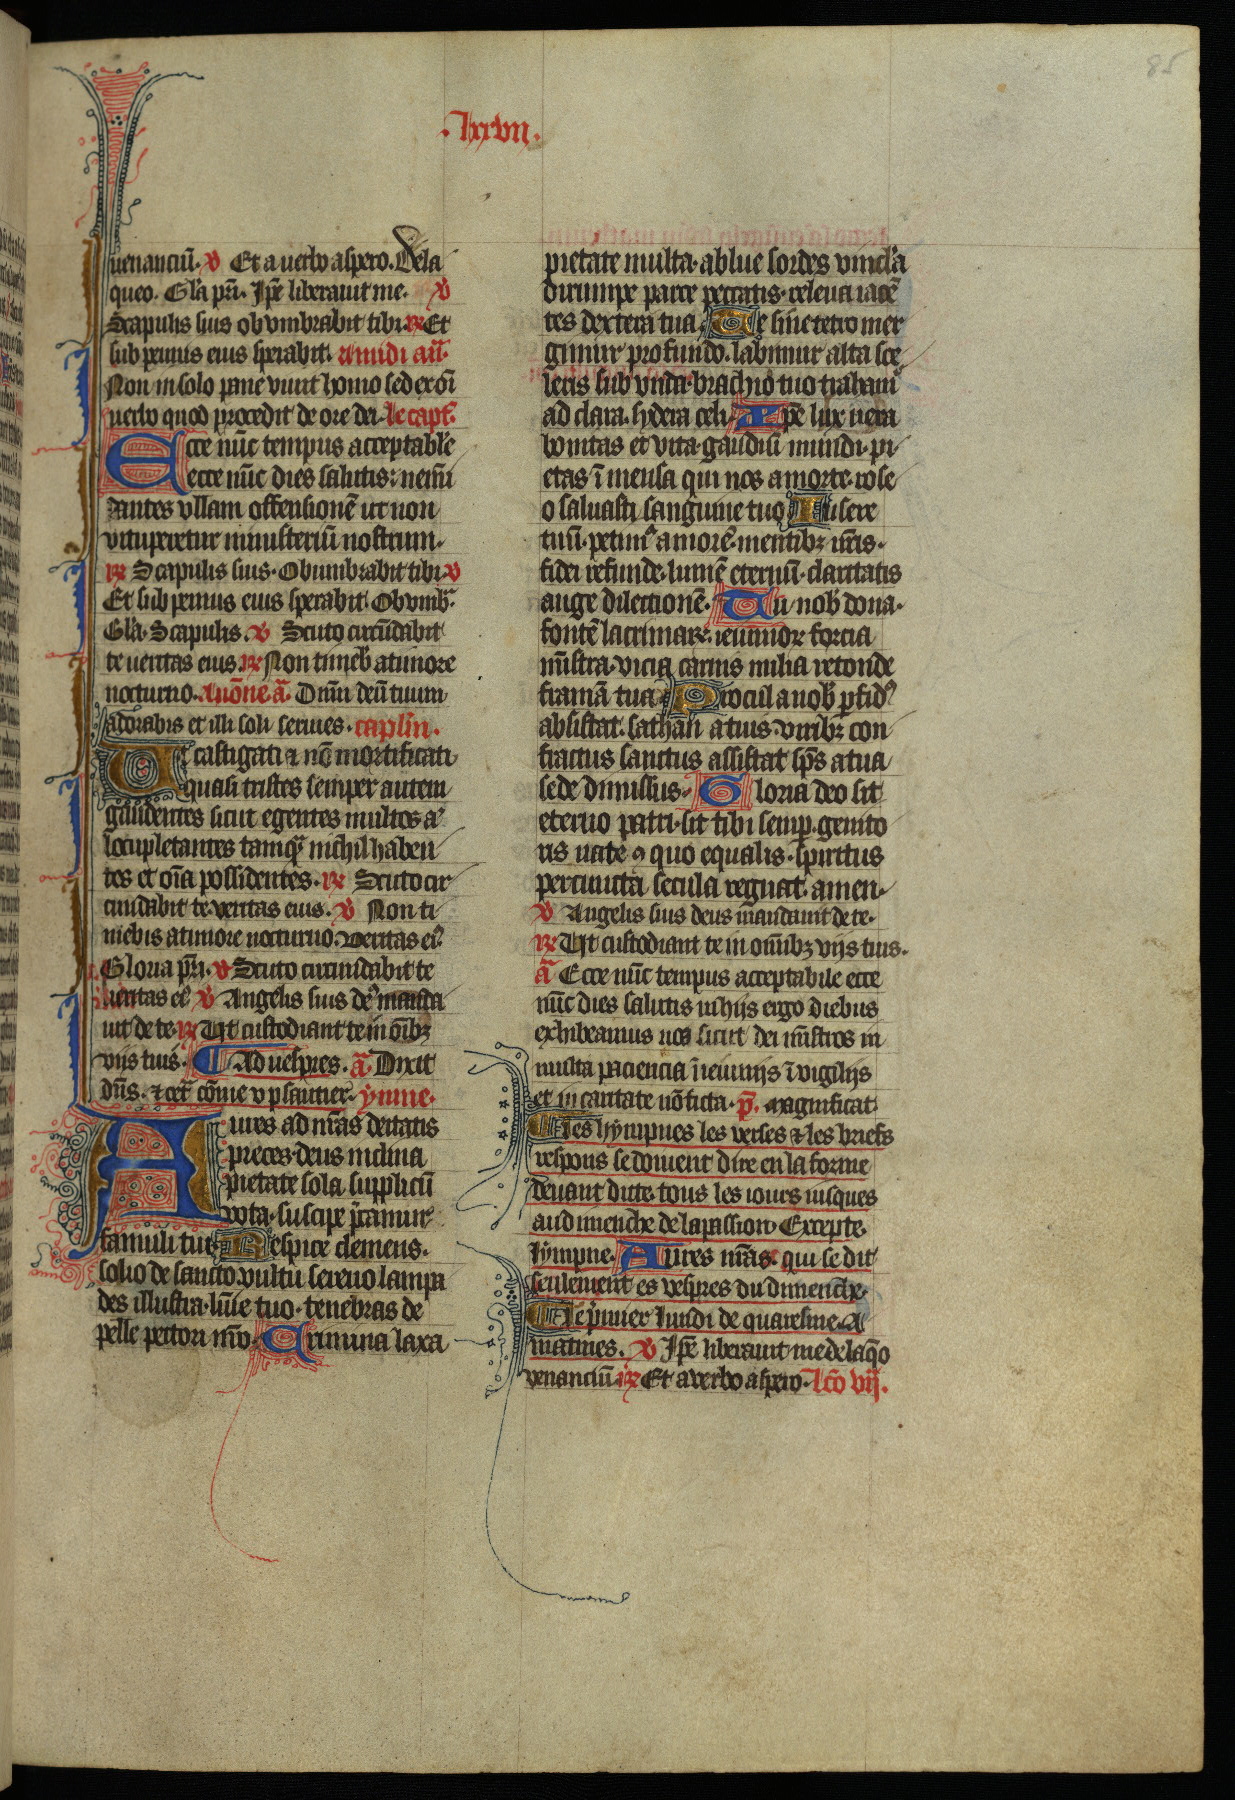 85
.lxxvii.
uenanciū. v Et a uerbo aspero. Dela
queo. Gl'a pr̄i. Ip̄e liberauit me. v
Scapulis suis obvmbrabit tibi. rx Et
sub pennis eius sperabit. a midi añ.
Non in solo pane viuit homo sed ex oī
uerbo quod procedit de ore dei. le capt̄.
Ecce nūc tempus acceptable
ecce nūc dies salutis: nemī
dantes vllam offensionē ut non
vituperetur ministeriū nostrum.
rx Scapulis suis. Obumbrabit tibi. v
Et sub pennis eius sperabit. Obvmb̄.
Gl'a. Scapulis. v Scuto circūdabit
te ueritas eius. rx Non timeb̄ a timore
nocturno. a nōne ā. Dn̄m deū tuum
adorabis et illi soli seruies. captl'm.
Ut castigati & nō mortificati
quasi tristes semper autem
gaudentes sicut egentes multos a'
locupletantes tamqͣ nichil haben
tes et oīa possidentes. rx Scuto cir
cundabit te veritas eius. v Non ti
mebis a timore nocturno. veritas ei'
Gloria pr̄i. v Scuto circundabit te
ueritas ei' v Angelis suis de' manda
uit de te. rx Ut custodiant te in ōibȝ
viis tuis. Ad uespres. ā. Dixit
dn̄s. & cet̄ cōme v psautier. ymne.
Aures ad nr̄as deitatis
preces deus inclina
pietate sola supplicū
vota. suscipe p̄camur
famuli tui. Respice clemens.
solio de sancto. vultu sereno lampa
des illustra. lūīe tuo. tenebras de
pelle pectori nr̄o. Crimina laxa
pietate multa. ablue sordes vincl'a
dirumpe parce peccatis. releua iacē
tes dextera tua. Te sine tetro mer
gimur profundo. labimur alta sce
leris sub vnda. brachio tuo traham'
ad clara. sydera celi. Xp̄e lux uera
bonitas et vita. gaudiū mundi. pi
etas ī mensa qui nos a morte. rose
o saluasti sanguine tuo. Insere
tuū. petim' amorē. mentibȝ nr̄is.
fidei refunde. lumē eternū. claritatis
auge dilectionē. Tu nob̄ dona.
fontē lacrimarꝝ. ieiuniorꝝ forcia
mīstra. vicia carnis milia retonde
framā tua. Procul a nob̄ pfid'
absistat. sathan a tuis. viribȝ con
fractus sanctus assistat sp̄s a tua
sede dimissus. Gloria deo sit
eterno patri. sit tibi semp. genito
ris nate. cū quo equalis. spiritus
per cuncta secula regnat. amen.
v Angelis suis deus mandauit de te.
rx Ut custodiant te in omībȝ viis tuis.
ā Ecce nūc tempus acceptabile ecce
nūc dies salutis in hiis ergo diebus
exhibeamus nos sicut dei mīstros in
multa paciencia ī ieiuniis ī vigiliis
et in caritate nō ficta. p̄. magnificat.
Les hympnes les verses & les briefs
respons se doiuent dire en la forme
deuant dite. tous les iours iusques
au dimenche de la passion. Excepte.
lympne. Aures nr̄as. qui se dit
seulement es vespres du dimenche.
Le p̄mier lundi de quaresme. A
matines. v Ip̄e liberauit me de laq̄o
venanciū. rx Et a verbo aspero. lc̄o vij.